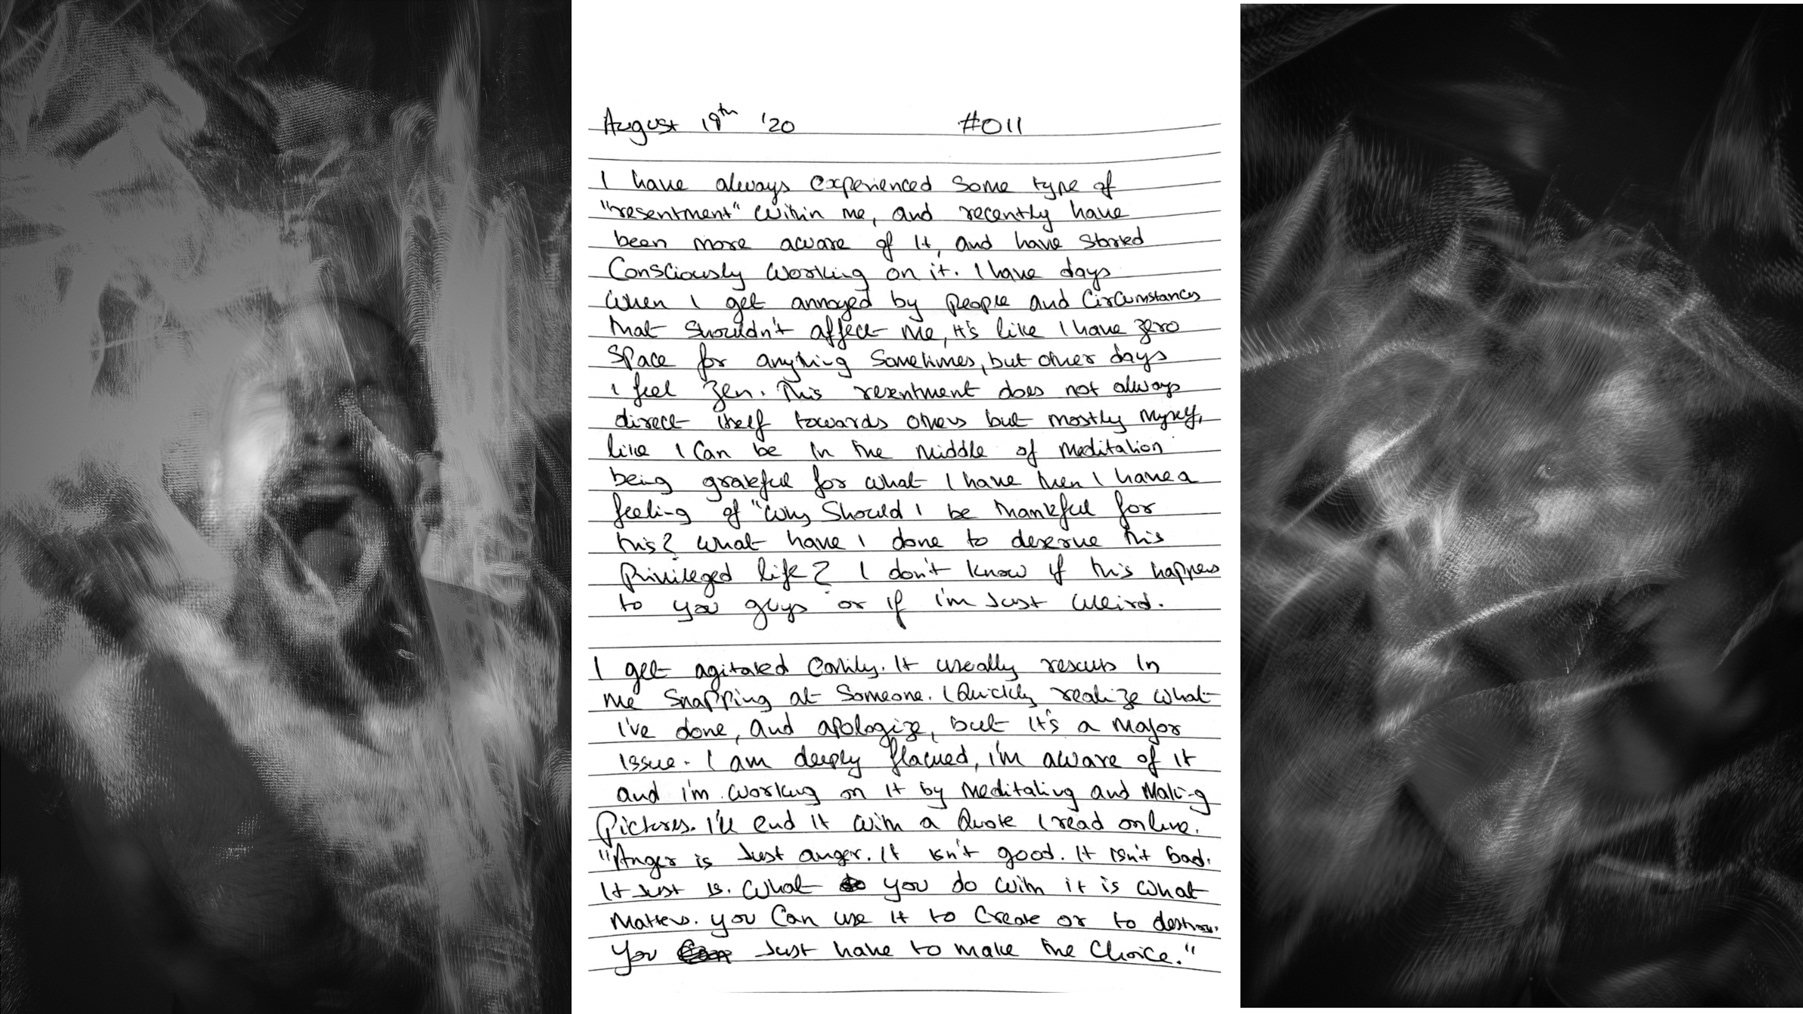 August 19th '20 #011
I have always experienced some type of
"resentment" within me, and recently have
been more aware of it, and have started
Consciously working on it. I have days
when I get annoyed by people and circumstances
that shouldn't affect me, it's like I have zero
space for anything sometimes, but other days
I feel zen. This resentment does not always
direct itself towards others but mostly myself,
like I can be in the middle of meditation
being grateful for what I have then I have a
feeling of "why should I be thankful for
this? what have I done to deserve this
privileged life? I don't know if this happens
to you guys or if i'm just weird.
I get agitated easily. It usually results in
me snapping at someone. I quickly realize what
I've done, and apologize, but it's a major
issue. I am deeply flawed, i'm aware of it
and i'm working on it by meditating and making
pictures. I'll end it with a quote I read online.
"Anger is just anger. It isn't good. It isn't bad.
It just is. What you do with it is what
matters. you can use it to create or to destroy.
You just have to make the choice."